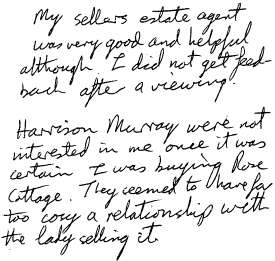 My sellers estate agent
was very good and helpful
although I did not get feed-
back after a viewing.
Harrison Murray were not
interested in me once it was
certain I was buying Rose
Cottage. They seemed to have far
too cosy a relationship with
the lady selling it.